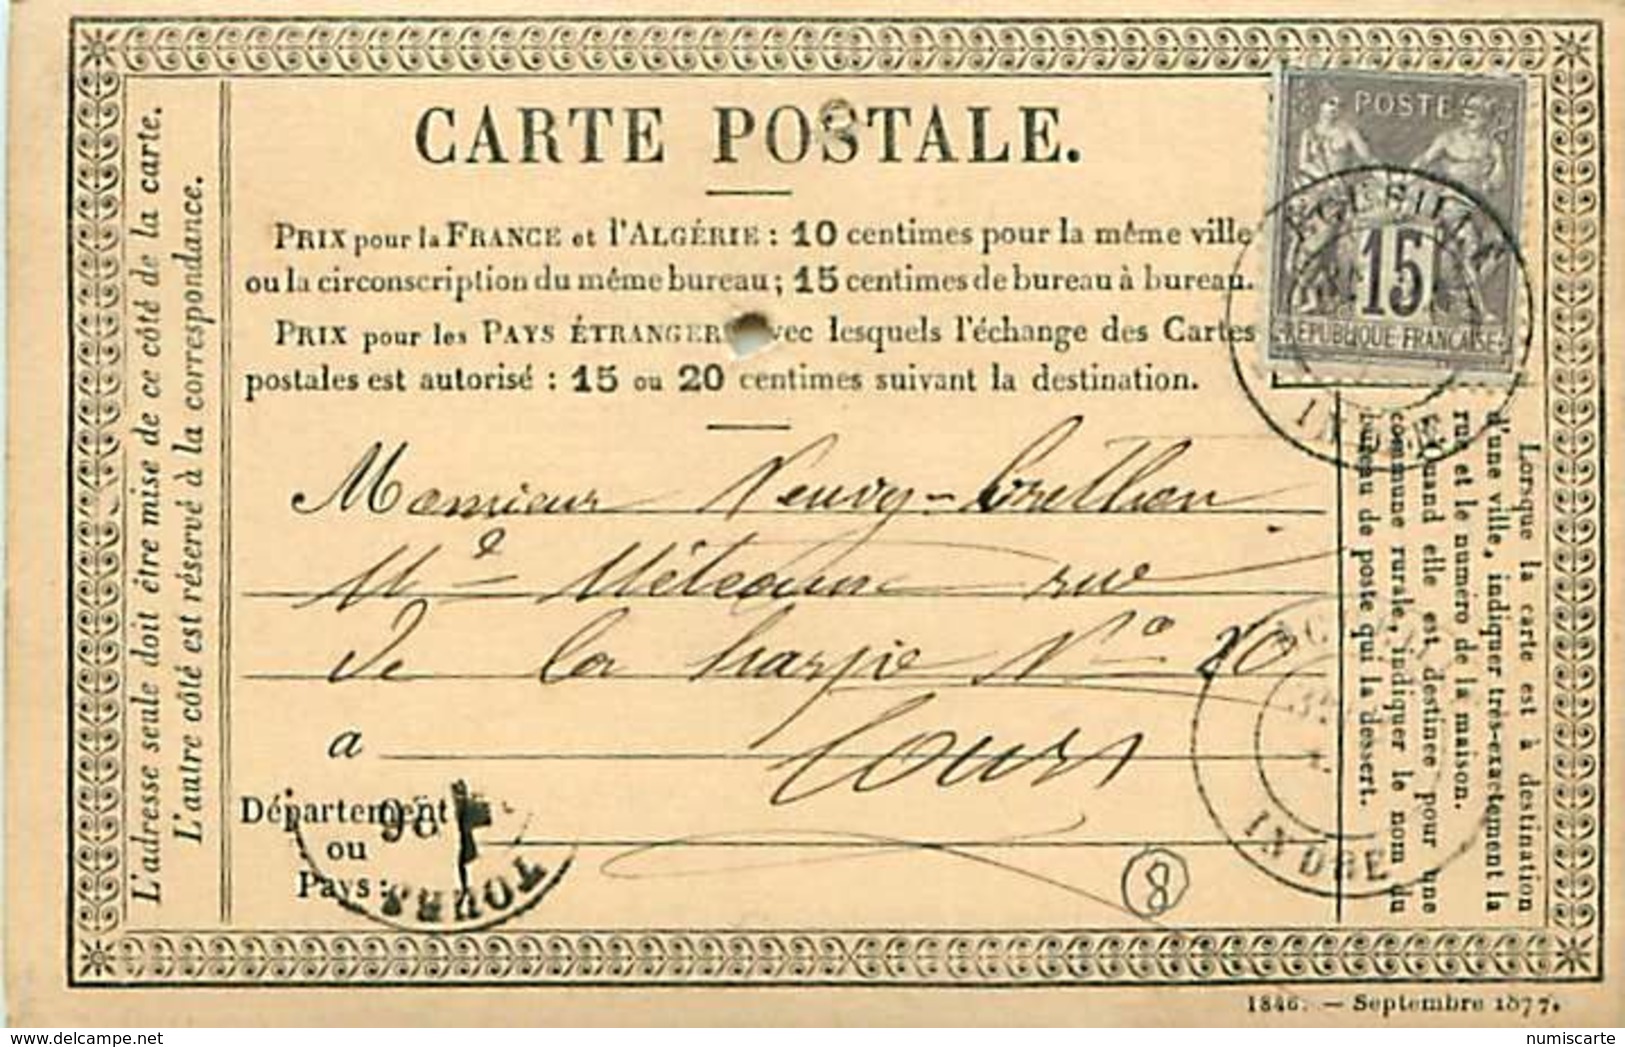 CARTE POSTALE.
PRIX pour la FRANCE et l'ALGÉRIE : 10 centimes pour la même ville
ou la circonscription du même bureau ; 15 centimes de bureau à bureau.
PRIX pour les PAYS ÉTRANGERS avec lesquels l'échange des Cartes
postales est autorisé : 15 ou 20 centimes suivant la destination.
L'adresse seule doit être mise de ce côté de la carte.
L'autre côté est réservé à la correspondance.
POSTE
15
REPUBLIQUE FRANÇAISE
INDRE
Monsieur Neuvy-Brethon
Md rue
de la harpe No 20
à Tours
Département
ou
Pays :
TOURS
INDRE
8
Lorsque la carte est à destination
d'une ville, indiquer très-exactement la
rue et le numéro de la maison.
Quand elle est destinée pour une
commune rurale, indiquer le nom du
bureau de poste qui la dessert.
1846. — Septembre 1877.
numiscarte